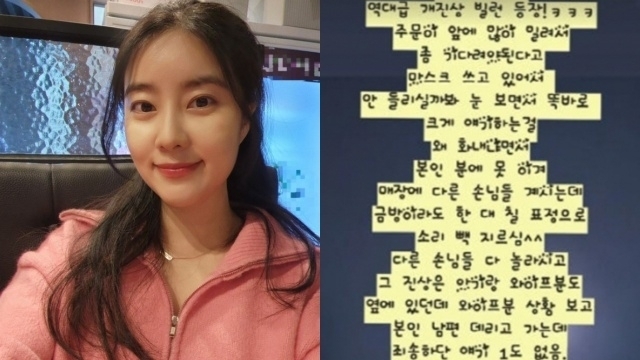 역대급 개진상 빌런 등장! ㅋㅋㅋ
주문이 앞에 많이 밀려서
좀 기다려야된다고
마스크 쓰고 있어서
안 들리실까봐 눈 보면서 똑바로
크게 얘기하는걸
왜 화내냐면서
본인 분에 못 이겨
매장에 다른 손님들 계시는데
금방이라도 한 대 칠 표정으로
소리 빽 지르심^^
다른 손님들 다 놀라시고
그 진상은 아이랑 와이프분도
옆에 있던데 와이프분 상황 보고
본인 남편 데리고 가는데
죄송하단 얘기 1도 없음